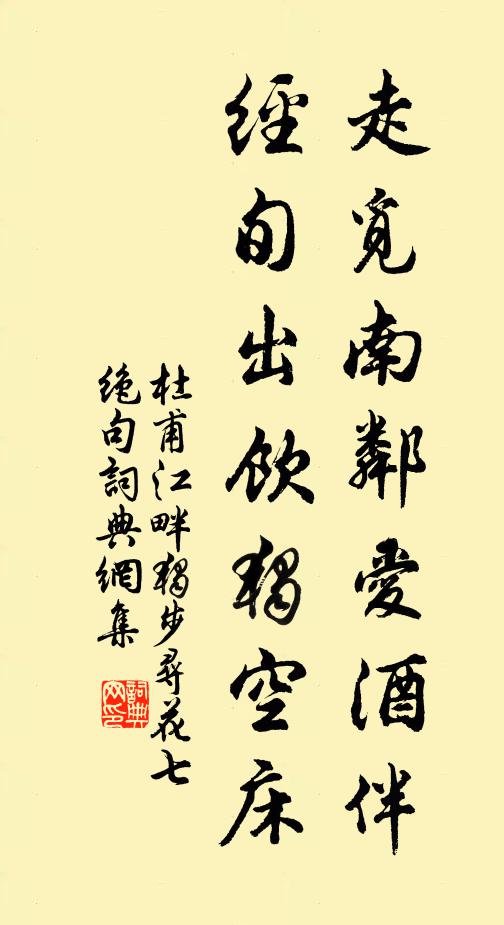 走覓南鄰愛酒伴
經旬出飲獨空床
杜甫江畔獨步尋花七
絕句詞典網集
詞典网印